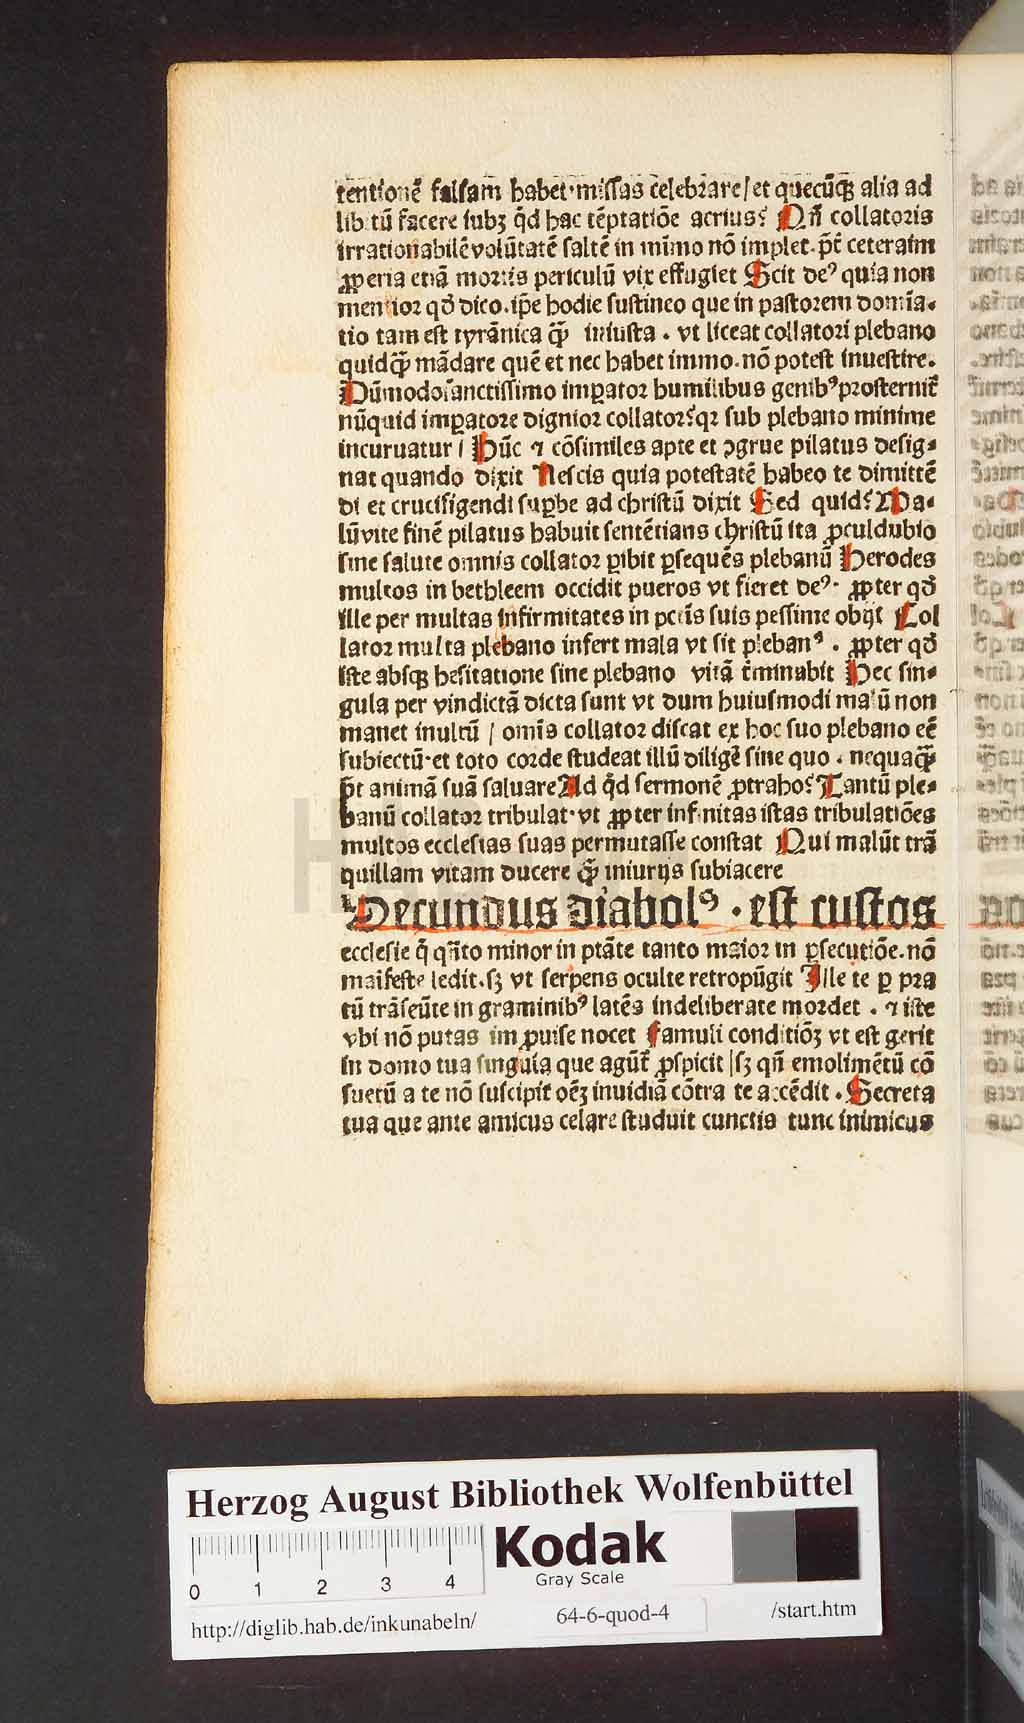 tentionē falsam habet·missas celebrare/et quecūqꝫ alia ad
libitū facere iubꝫ q̄d hac tēptatiōe acrius? Qn̄ collatoris
irrationabilē volūtatē saltē in mimo nō implet. p̄t ceteraim
ꝓperia etiā mortis periculū vix effugiet Scit deꝰ quia non
mentior qd̄ dico. ip̄e hodie sustineo que in pastorem domīa⸗
tio tam est tyrānica qͣ̄ iniusta . vt liceat collatori plebano
quidqͣ̄ mādare quē et nec habet immo. nō potest inuestire.
Dūmodo sanctissimo imꝑator humilibus genibꝰ prosternit̄
nūquid imꝑatore dignior collator? qꝛ sub plebano minime
incuruatur / Hūc ⁊ cōsimiles apte et ꝯgrue pilatus desig⸗
nat quando dixit Nescis quia potestatē habeo te dimittē
di et crucifigendi suꝑbe ad christū dixit Sed quid? Ma⸗
lū vite finē pilatus habuit sentētians christū ita ꝓculdubio
sine salute omnis collator ꝑibit ꝑsequēs plebanū Herodes
multos in bethleem occidit pueros vt fieret deꝰ· ꝓpter qd̄
ille per multas infirmitates in pctīs suis pessime obijt Col
lator multa plebano infert mala vt sit plebanꝰ . ꝓpter qd̄
iste absqꝫ hesitatione sine plebano vitā t̄minabit Hec sin⸗
gula per vindictā dicta sunt vt dum huiusmodi malū non
manet inultū / omīs collator discat ex hoc suo plebano eē
subiectū·et toto corde studeat illū diligē sine quo . nequaqͣ̄
p̄t animā suā saluare Ad q̄d sermonē ꝓtraho? Tantū ple⸗
banū collator tribulat·vt ꝓpter infinitas istas tribulatiōes
multos ecclesias suas permutasse constat Qui malūt trā
quillam vitam ducere qͣ̄ iniurijs subiacere
Secundus diabolꝰ . est custos
ecclesie q̄ qn̄to minor in ptāte tanto maior in ꝑsecutiōe. nō
maifeste ledit. sꝫ vt serpens oculte retropūgit Ille te ꝑ pra
tū trāseūte in graminibꝰ latēs indeliberate mordet . ⁊ iste
vbi nō putas imꝓuise nocet famuli conditiōꝫ vt est gerit
in domo tua singula que agūt̄ ꝓspicit / sꝫ qn̄ emolimētū cō
suetū a te nō suscipit̄ oēꝫ inuidiā cōtra te accēdit . Secreta
tua que ante amicus celare studuit cunctis tunc inimicus
HAB
Herzog August Bibliothek Wolfenbüttel
Kodak
Gray Scale
0 1 2 3 4
http://diglib.hab.de/inkunabeln/
64-6-quod-4
/start.htm